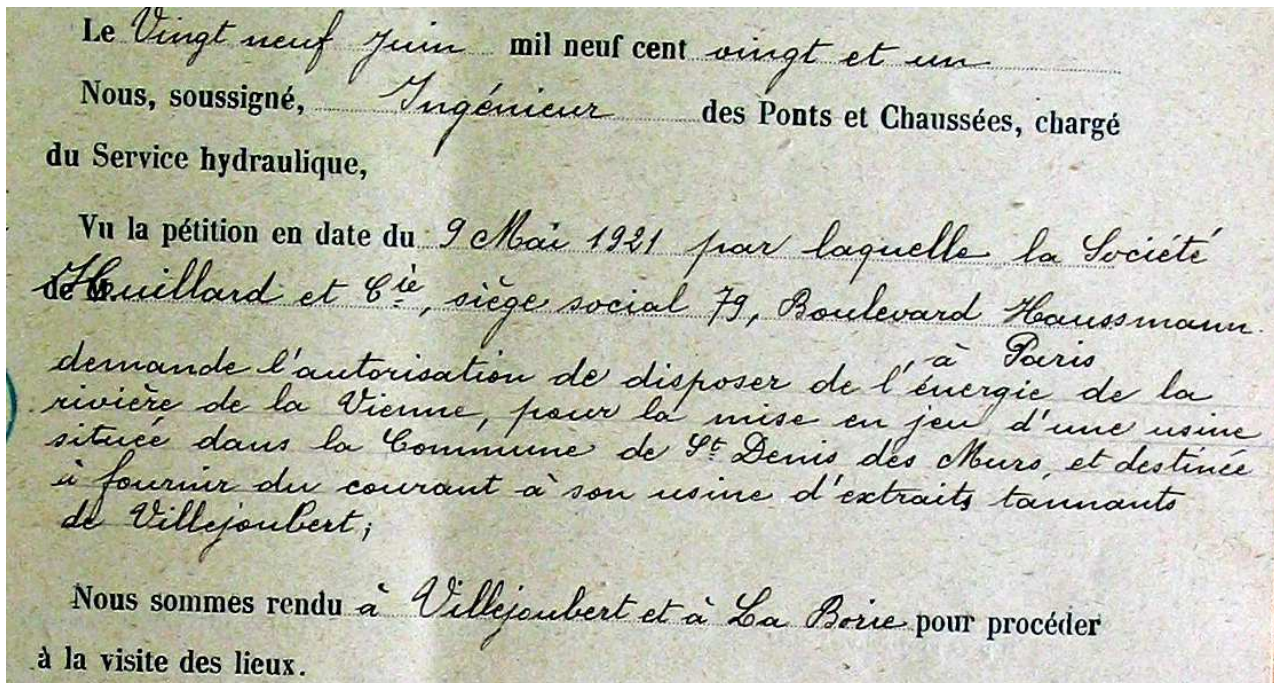 Le Vingt neuf Juin mil neuf cent vingt et un
Nous, soussigné, Ingénieur des Ponts et Chaussées, chargé
du Service hydraulique,
Vu la pétition en date du 9 Mai 1921 par laquelle la Société
Huillard et Cie, siège social 79, Boulevard Haussmann
à Paris
demande l'autorisation de disposer de l'énergie de la
rivière de la Vienne, pour la mise en jeu d'une usine
située dans la Commune de St Denis des Murs, et destinée
à fournir du courant à son usine d'extraits tannants
de Villejoubert;
Nous sommes rendu à Villejoubert et à La Borie pour procéder
à la visite des lieux.